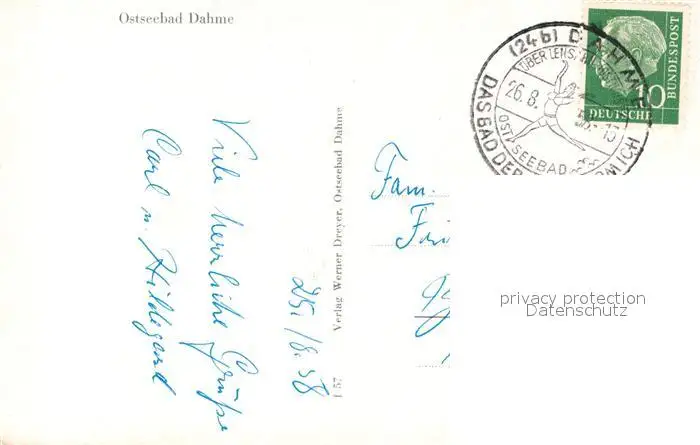 Ostseebad Dahme
Viele herrliche Grüße
Carl u. Hildegard
25./8.58
Verlag Werner Dreyer, Ostseebad Dahme
1 57
Fam.
(24b) DAHME
ÜBER LENSAHN
26.8.
OSTSEEBAD
DAS BAD DER
MICH
10
DEUTSCHE
BUNDESPOST
privacy protection
Datenschutz